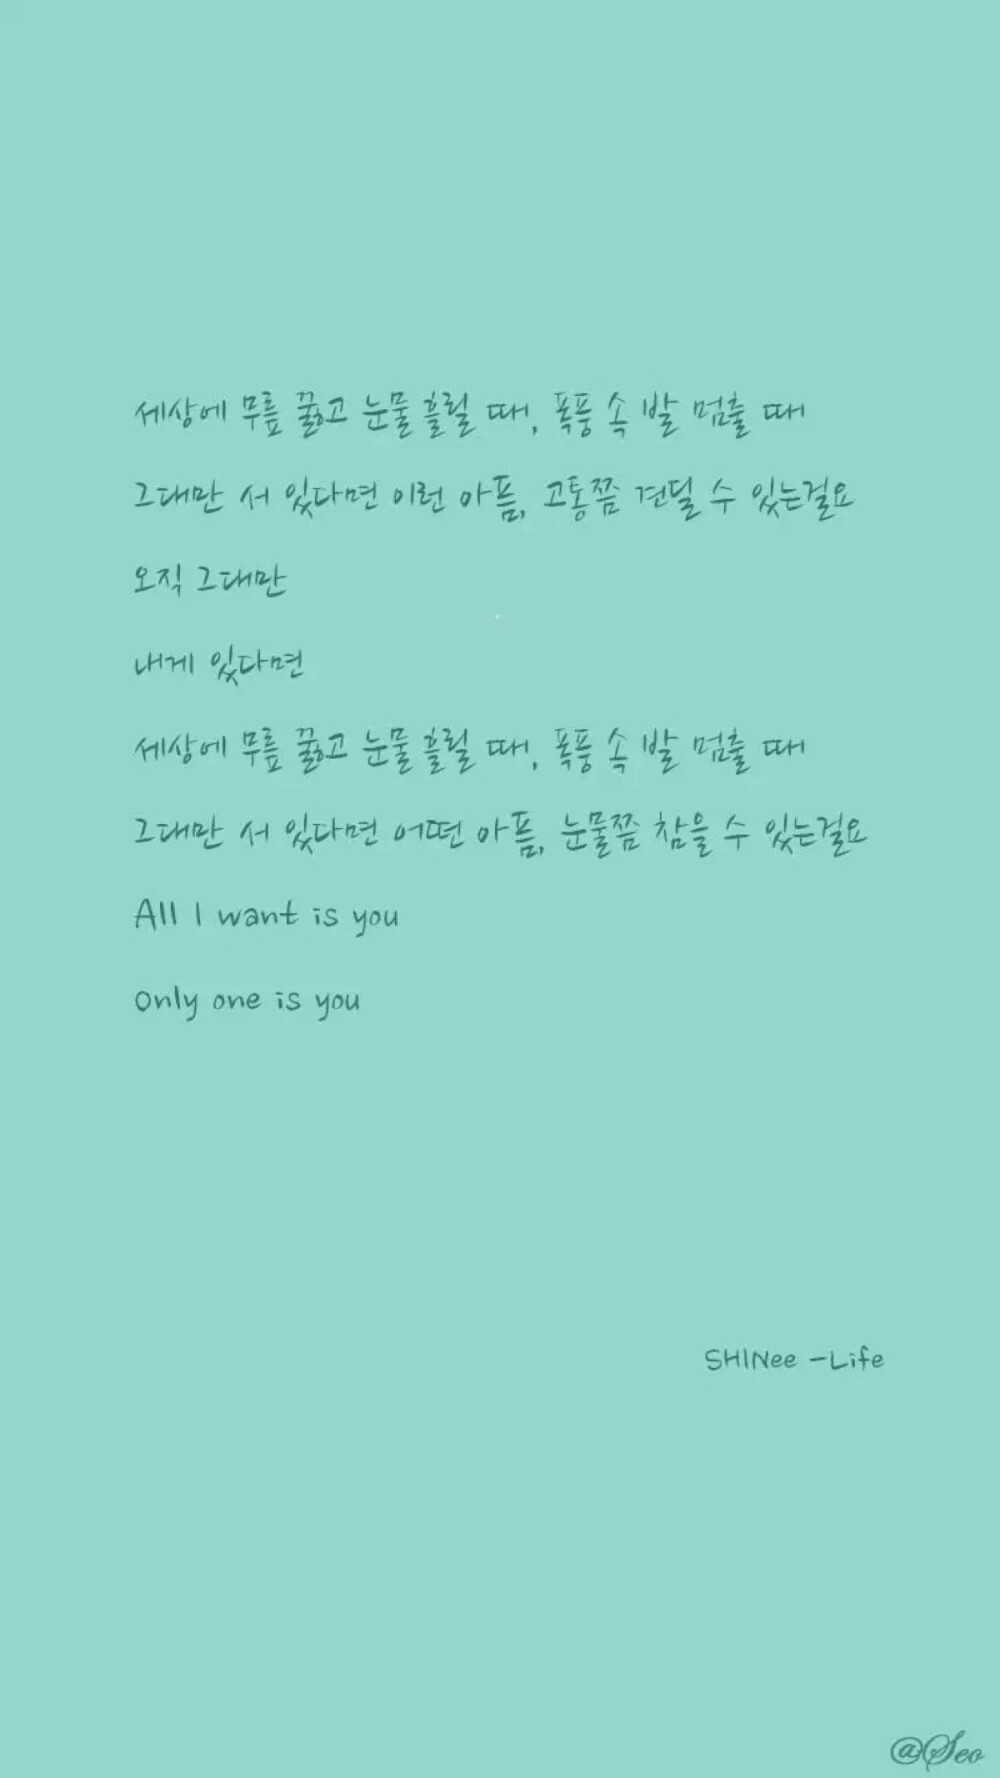 세상에 무릎 꿇고 눈물 흘릴 때, 폭풍 속 발 멈출 때
그대만 서 있다면 이런 아픔, 고통쯤 견딜 수 있는걸요
오직 그대만
내게 있다면
세상에 무릎 꿇고 눈물 흘릴 때, 폭풍 속 발 멈출 때
그대만 서 있다면 어떤 아픔, 눈물쯤 참을 수 있는걸요
All I want is you
Only one is you
SHINee -Life
@Seo